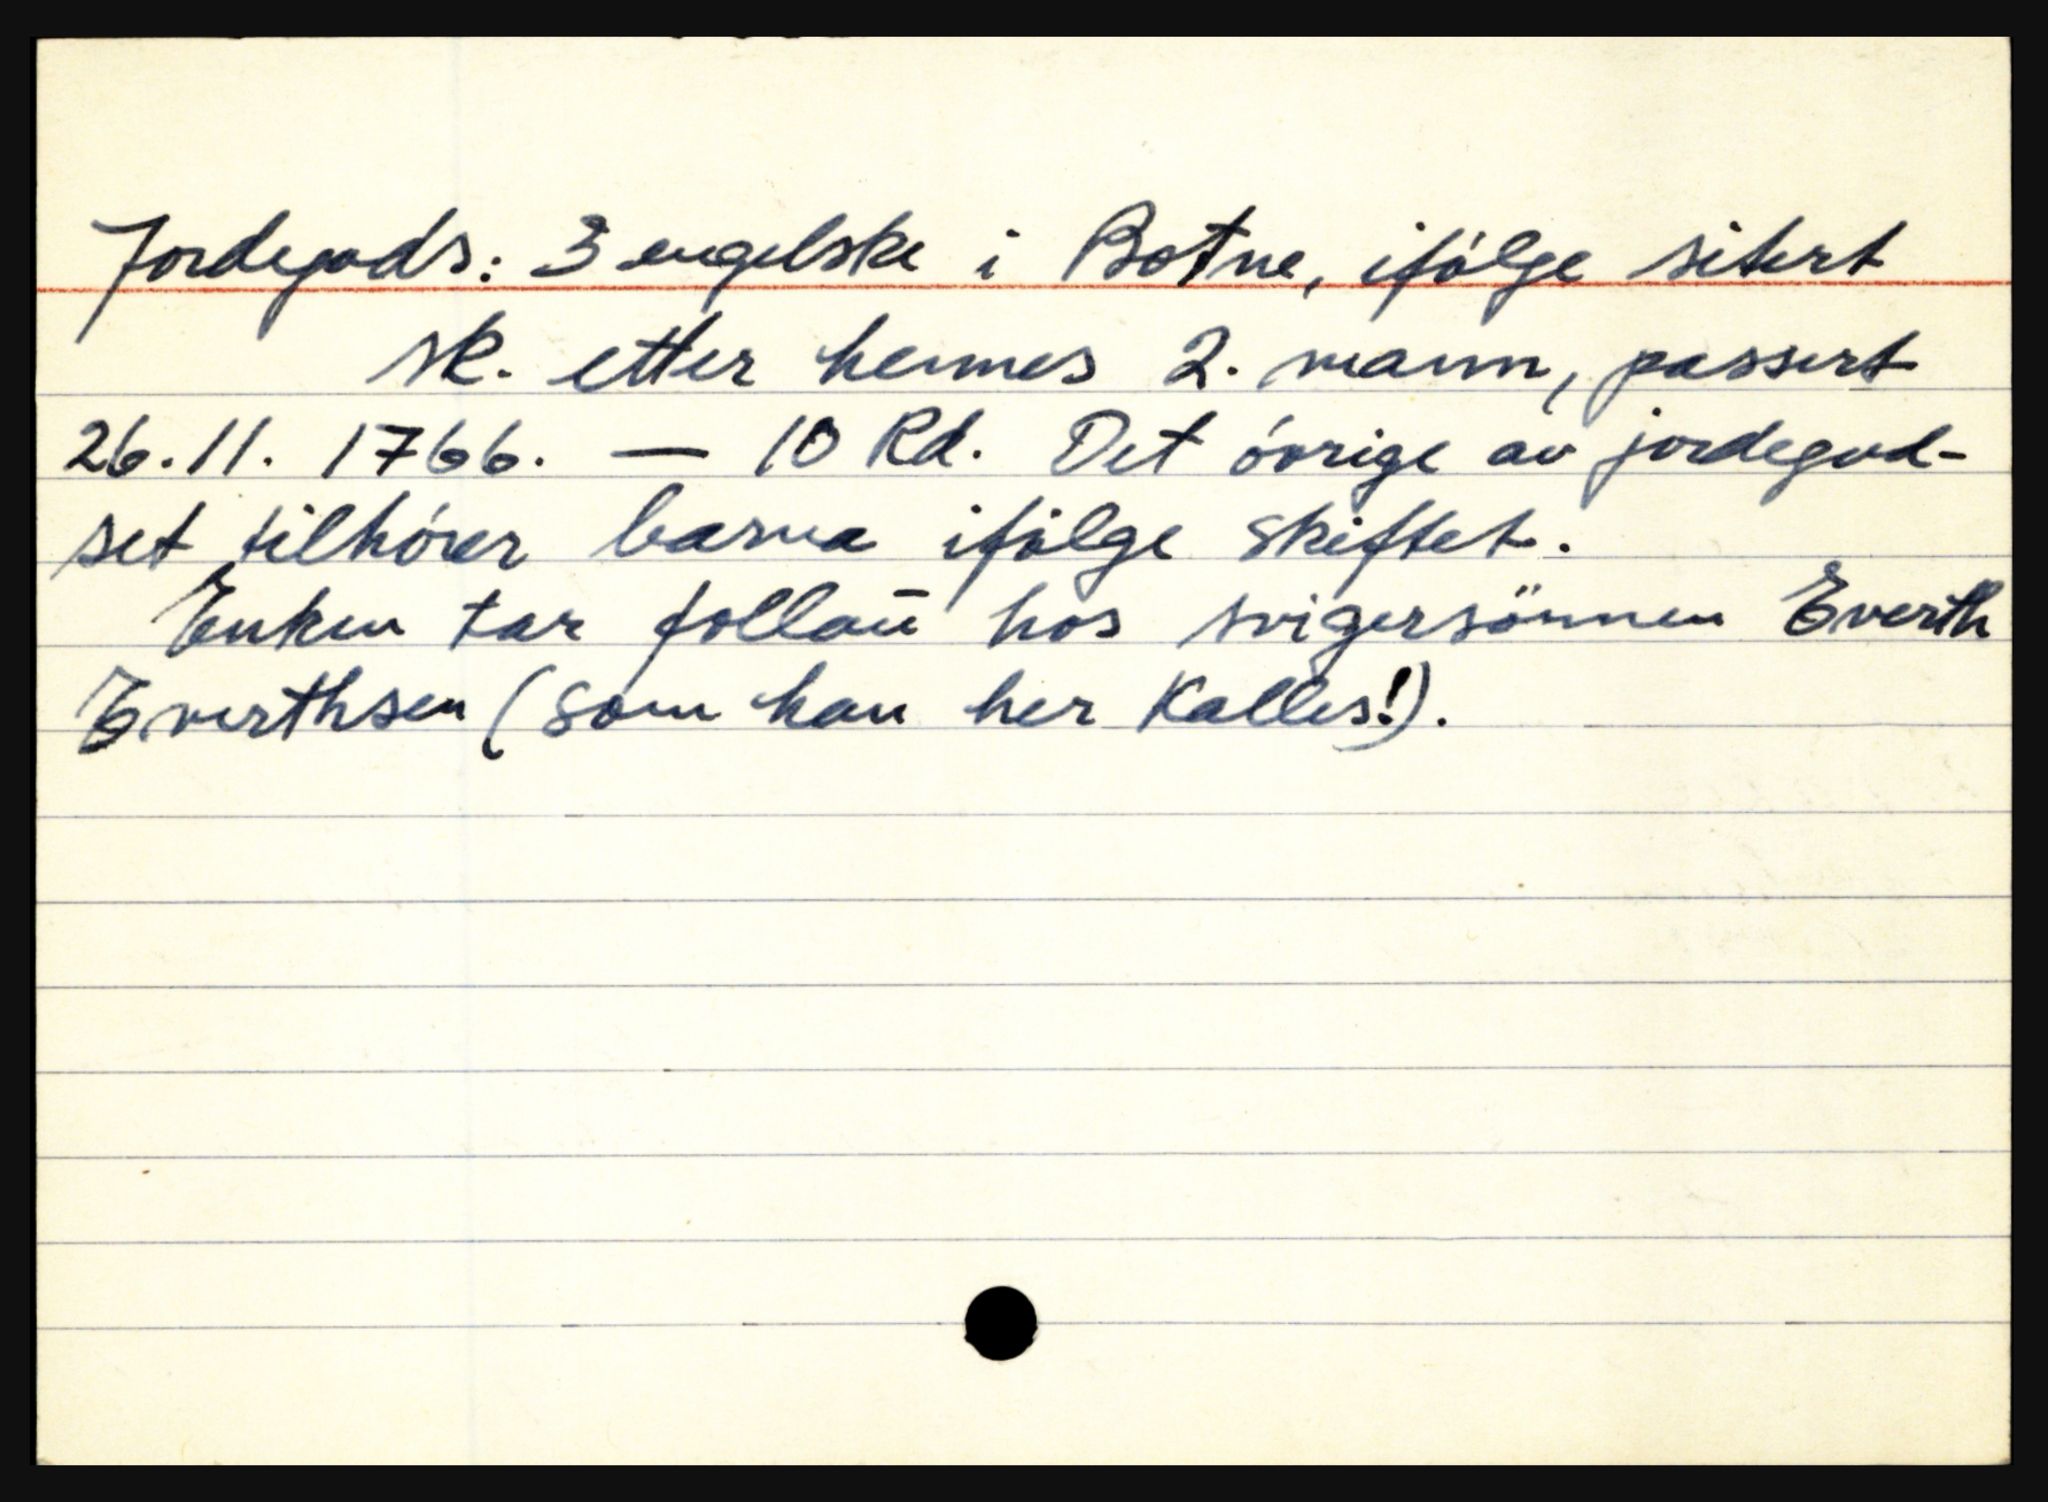 Jordegods: 3 engelske i Botne, ifölge sikert
sk. etter hennes 2. mann, passert
26.11. 1766. — 10 Rd. Det óvrige av jordegod-
set tilhórer barna ifölge skiftet.
Enken tar follaū hos svigersönnen Everth
Everthsen (som han her Kalles!).